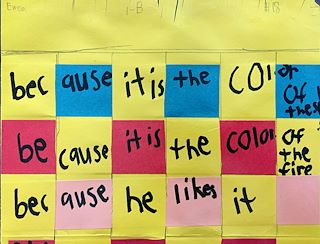 1-B #18
because it is the color of these
because it is the color of the fire
because he likes it